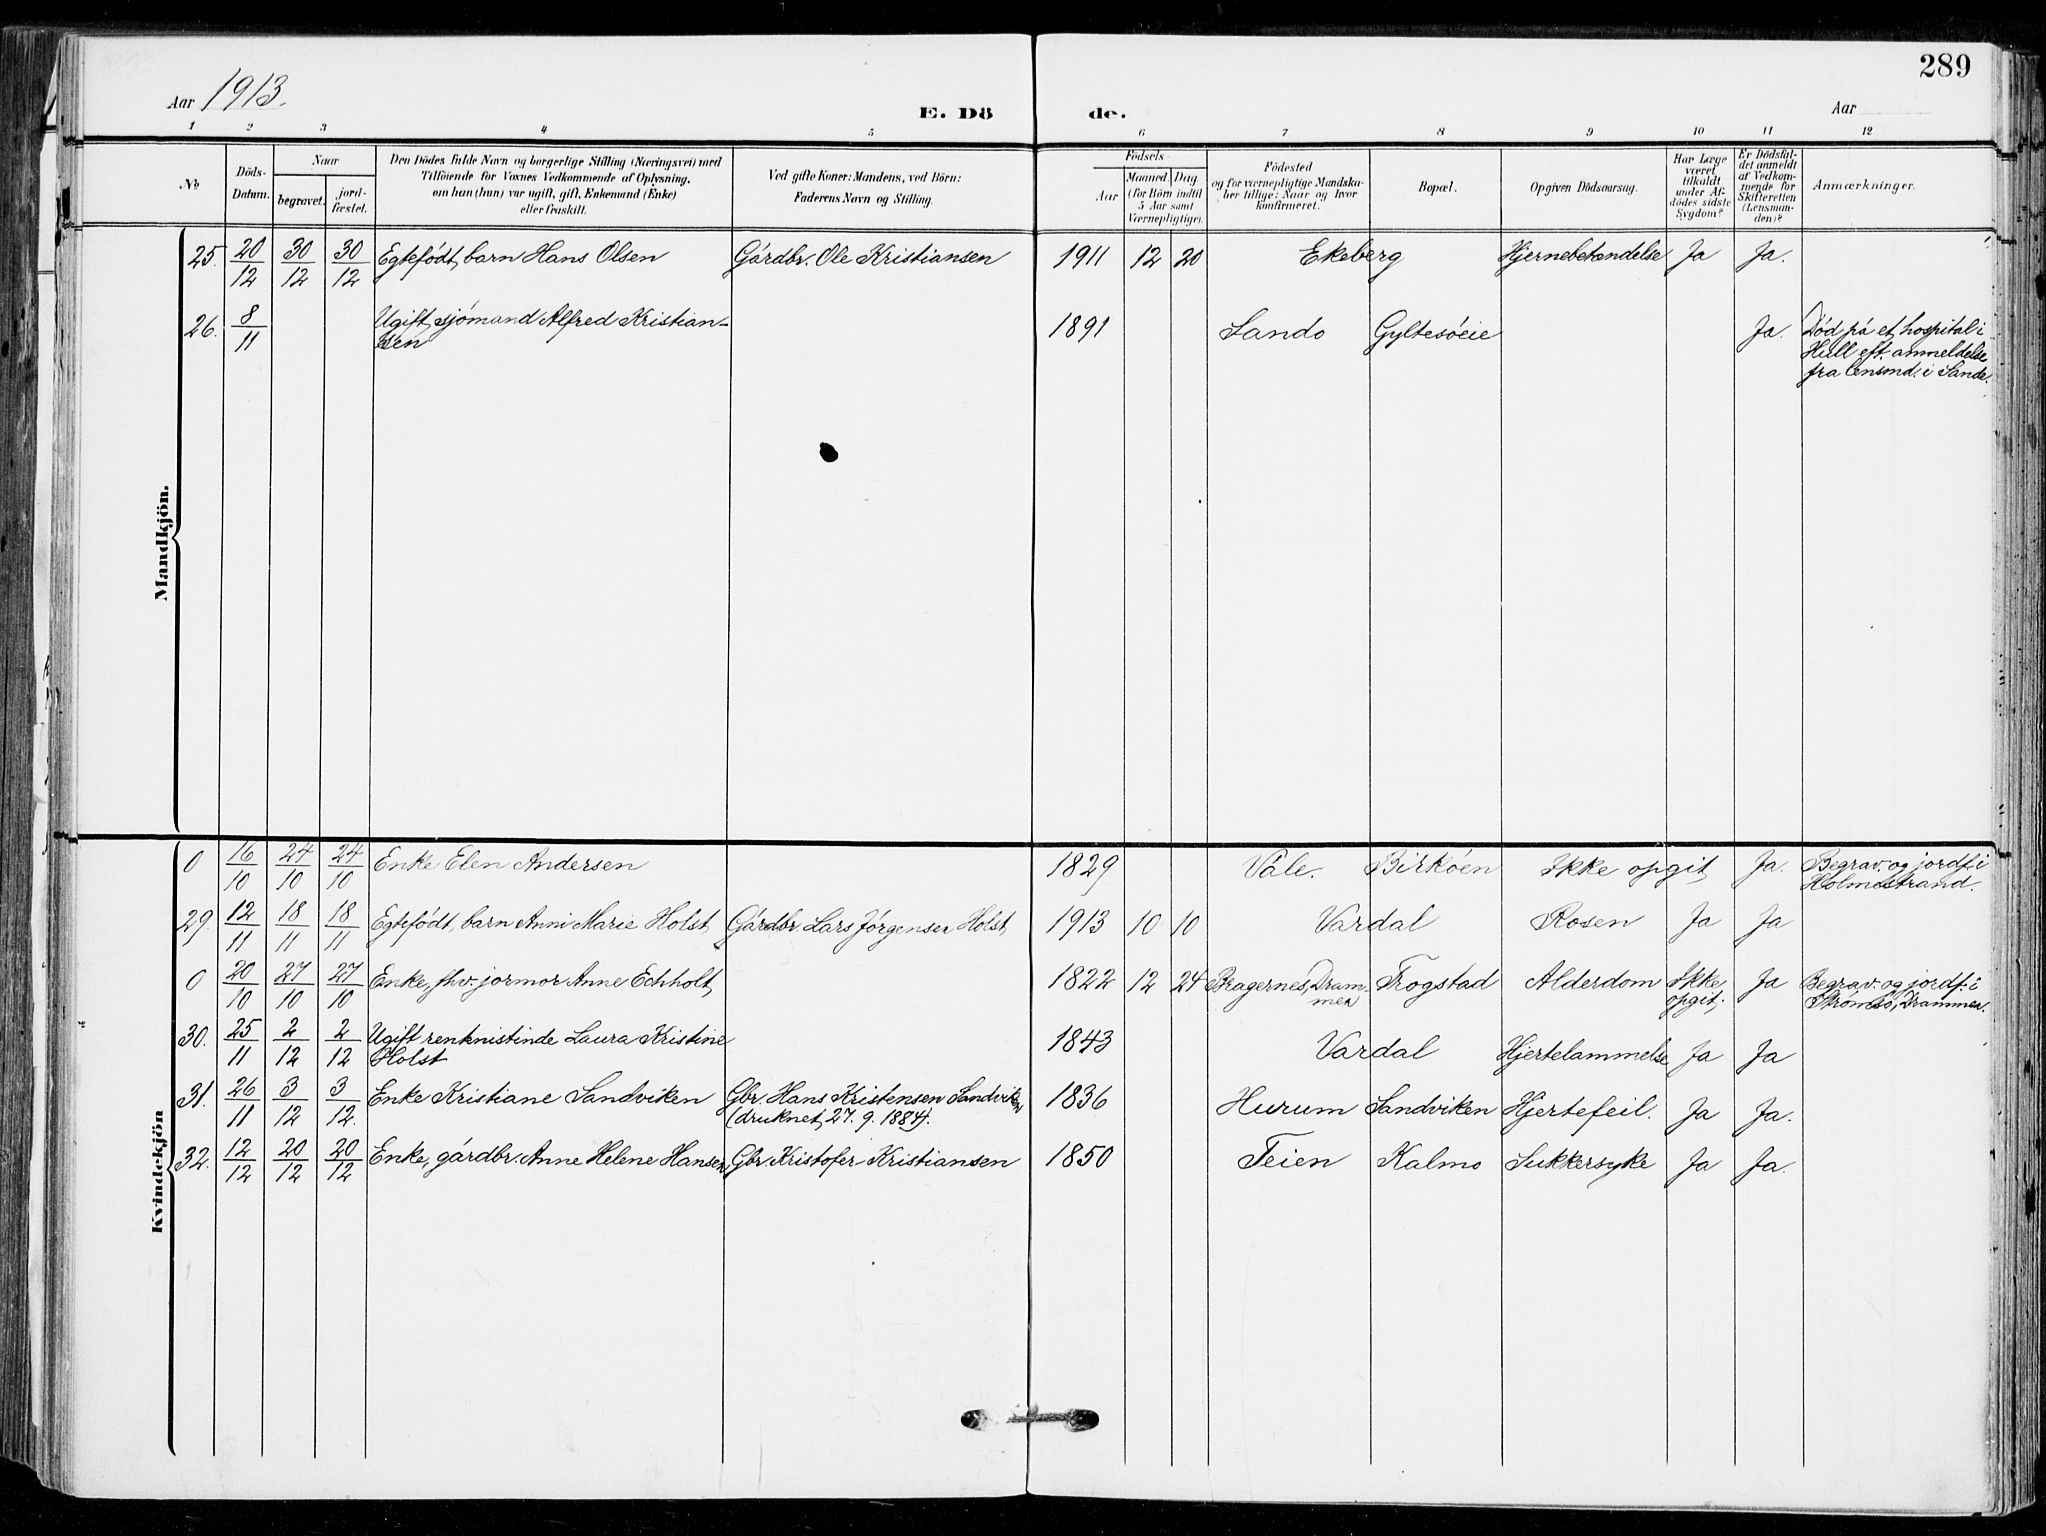 289
Aar 1913.
E. Dö de.
Aar
1 2 3 4 5 6 7 8 9 10 11 12
No
Döds-Datum.
Naar
begravet.
jord-fæstet.
Den Dödes fulde Navn og borgerlige Stilling (Næringsvei) med
Tilföiende for Voxnes Vedkommende af Oplysning,
om han (hun) var ugift, gift, Enkemand (Enke)
eller fraskilt.
Ved gifte Koner: Mandens, ved Börn:
Faderens Navn og Stilling.
Födsels-
Aar
Maaned Dag
(for Börn indtil
5 Aar samt
Værnepligtige).
Födested
og for værnepligtige Mandska-
ber tillige: Naar og hvor
konfirmeret.
Bopæl.
Opgiven Dödsaarsag.
Har Læge
været
tilkaldt
under Af-
dödes sidste
Sygdom?
Er Dödsfal-
det anmeldt
af Vedkom-
mende for
Skifteretten
(Lensman-
den)?
Anmærkninger.
Mandkjön.
25. 20/12 30/12 30/12 Egtefödt barn Hans Olsen Gårdbr. Ole Kristiansen 1911 12 20 Ekeberg Hjernebetændelse Ja Ja.
26. 8/11 Ugift sjömand Alfred Kristian-
sen 1891 Sando Gyltesöeie Ja. Död på et hospital i
Hull eft. anmeldelse
fra lensmd. i Sande.
Kvindekjön
0 16/10 24/10 24/10 Enke Elen Andersen 1829 Våle. Birköen Ikke opgit Ja. Begrav. og jordf. i
Holmestrand.
29. 12/11 18/11 18/11 Egtefödt barn Anni Marie Holst Gårdbr. Lars Jörgensen Holst 1913 10 10 Vardal Rosen Ja Ja
0 20/10 27/10 27/10 Enke, fhv. jormor Anne Echholt, 1822 12 24 Bragernes, Dram-
men Frogstad Alderdom Ikke
opgit. Ja Begrav. og jordf. i
Strömsö, Drammen.
30. 25/11 2/12 2/12 Ugift renknistinde Laura Kristine
Holst 1843 Vardal Hjertelammelse Ja Ja
31. 26/11 3/12 3/12. Enke Kristiane Sandviken Gbr. Hans Kristensen Sandviken
(druknet 27. 9. 1884). 1836 Hurum Sandviken Hjertefeil. Ja Ja.
32. 12/12 20/12 20/12 Enke, gårdbr. Anne Helene Hansen Gbr. Kristofer Kristiansen 1850 Teien Kalmo Sukkersyke Ja Ja.